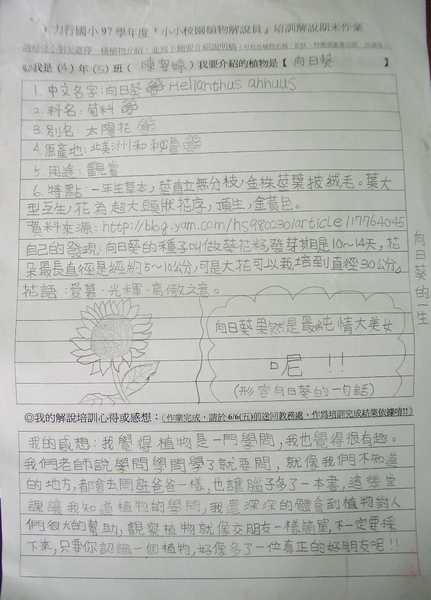 力行國小97學年度『小小校園植物解說員』培訓解說期末作業
◎我是（4）年（5）班（陳 婷）我要介紹的植物是【向日葵】
1.中文名字:向日葵 Helianthus annuus
2.科名:菊科
3.別名:太陽花
4.原產地:北美洲和秘魯
5.用途:觀賞
6.特點:一年生草本,莖直立無分枝,全株莖葉披絨毛。葉大
型互生,花為超大頭狀花序,頂生,金黃色。
資料來源:http://blog.yam.com/hs980230/article/17764045
自己的發現:向日葵的種子叫做葵花籽發芽期是10~14天,花
朵最長直徑是經約5~10公分,可是大花可以栽培到直徑30公分。
花語:愛慕.光輝.高傲之意。
向日葵的一生
向日葵果然是最純情大美女
呢!!
(形容向日葵的一句話)
◎我的解說培訓心得或感想：(作業完成，請於6/6(五)前送回教務處，作為培訓完成結業依據唷!!)
我的感想:我覺得植物是一門學問,我也覺得很有趣。
我們老師說學問學問學了就要問,就像我們不知道
的地方,都會去問爸爸一樣,也讓腦子多了一本書,這些堂
課讓我知道植物的學問,我還深深的體會到植物對人
們很大的幫助,觀察植物就像交朋友一樣簡單,不一定要採
下來,只要你認識一個植物,好像多了一位真正的好朋友呢!!